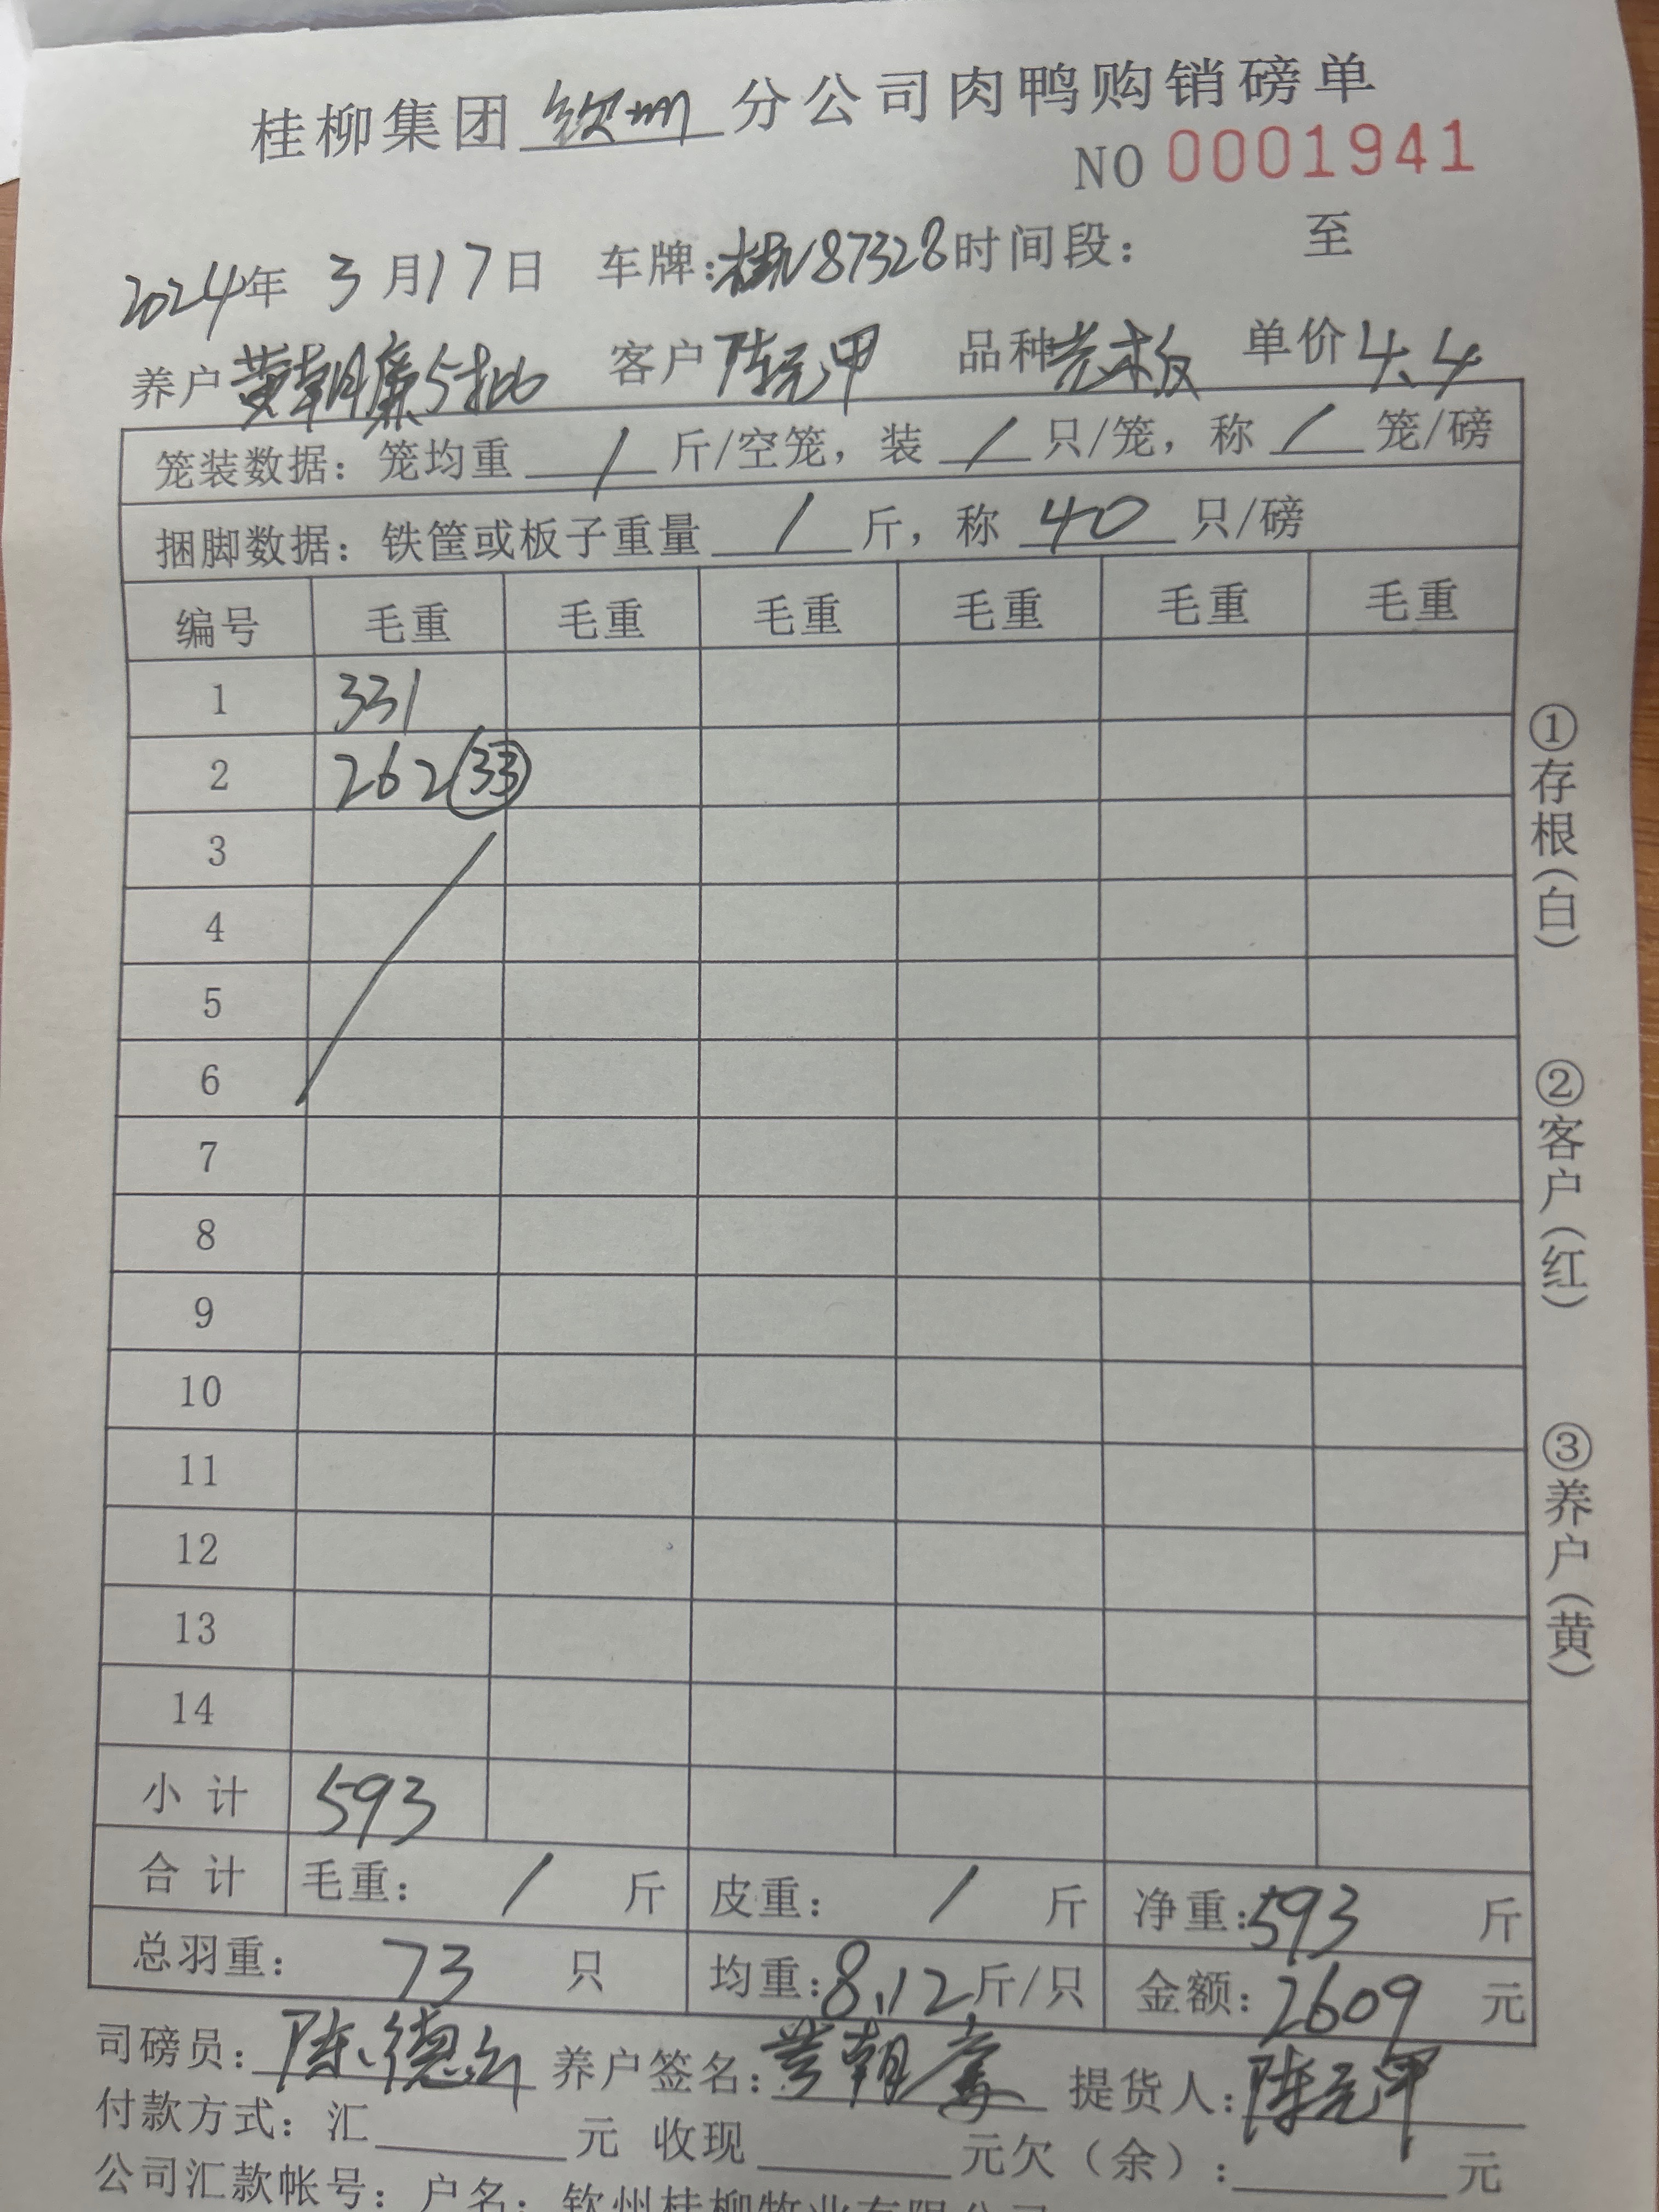 桂柳集团 钦州 分公司肉鸭购销磅单
NO 0001941
2024年 3月17日 车牌:桂N87328 时间段: 至
养户 黄朝廉5批 客户 陈元甲 品种 单价 4.4
笼装数据: 笼均重 / 斤/空笼, 装 / 只/笼, 称 / 笼/磅
捆脚数据: 铁筐或板子重量 / 斤, 称 40 只/磅
编号 毛重 毛重 毛重 毛重 毛重 毛重
1 331
2 262 (33)
3
4
5
6
7
8
9
10
11
12
13
14
小计 593
合计 毛重: / 斤 皮重: / 斤 净重:593 斤
总羽重: 73 只 均重:8.12斤/只 金额:2609 元
司磅员:陈德 养户签名:黄朝廉 提货人:陈元甲
付款方式:汇 元 收现 元欠(余): 元
公司汇款帐号: 户名: 钦州桂柳牧业有限公司
①存根(白)
②客户(红)
③养户(黄)